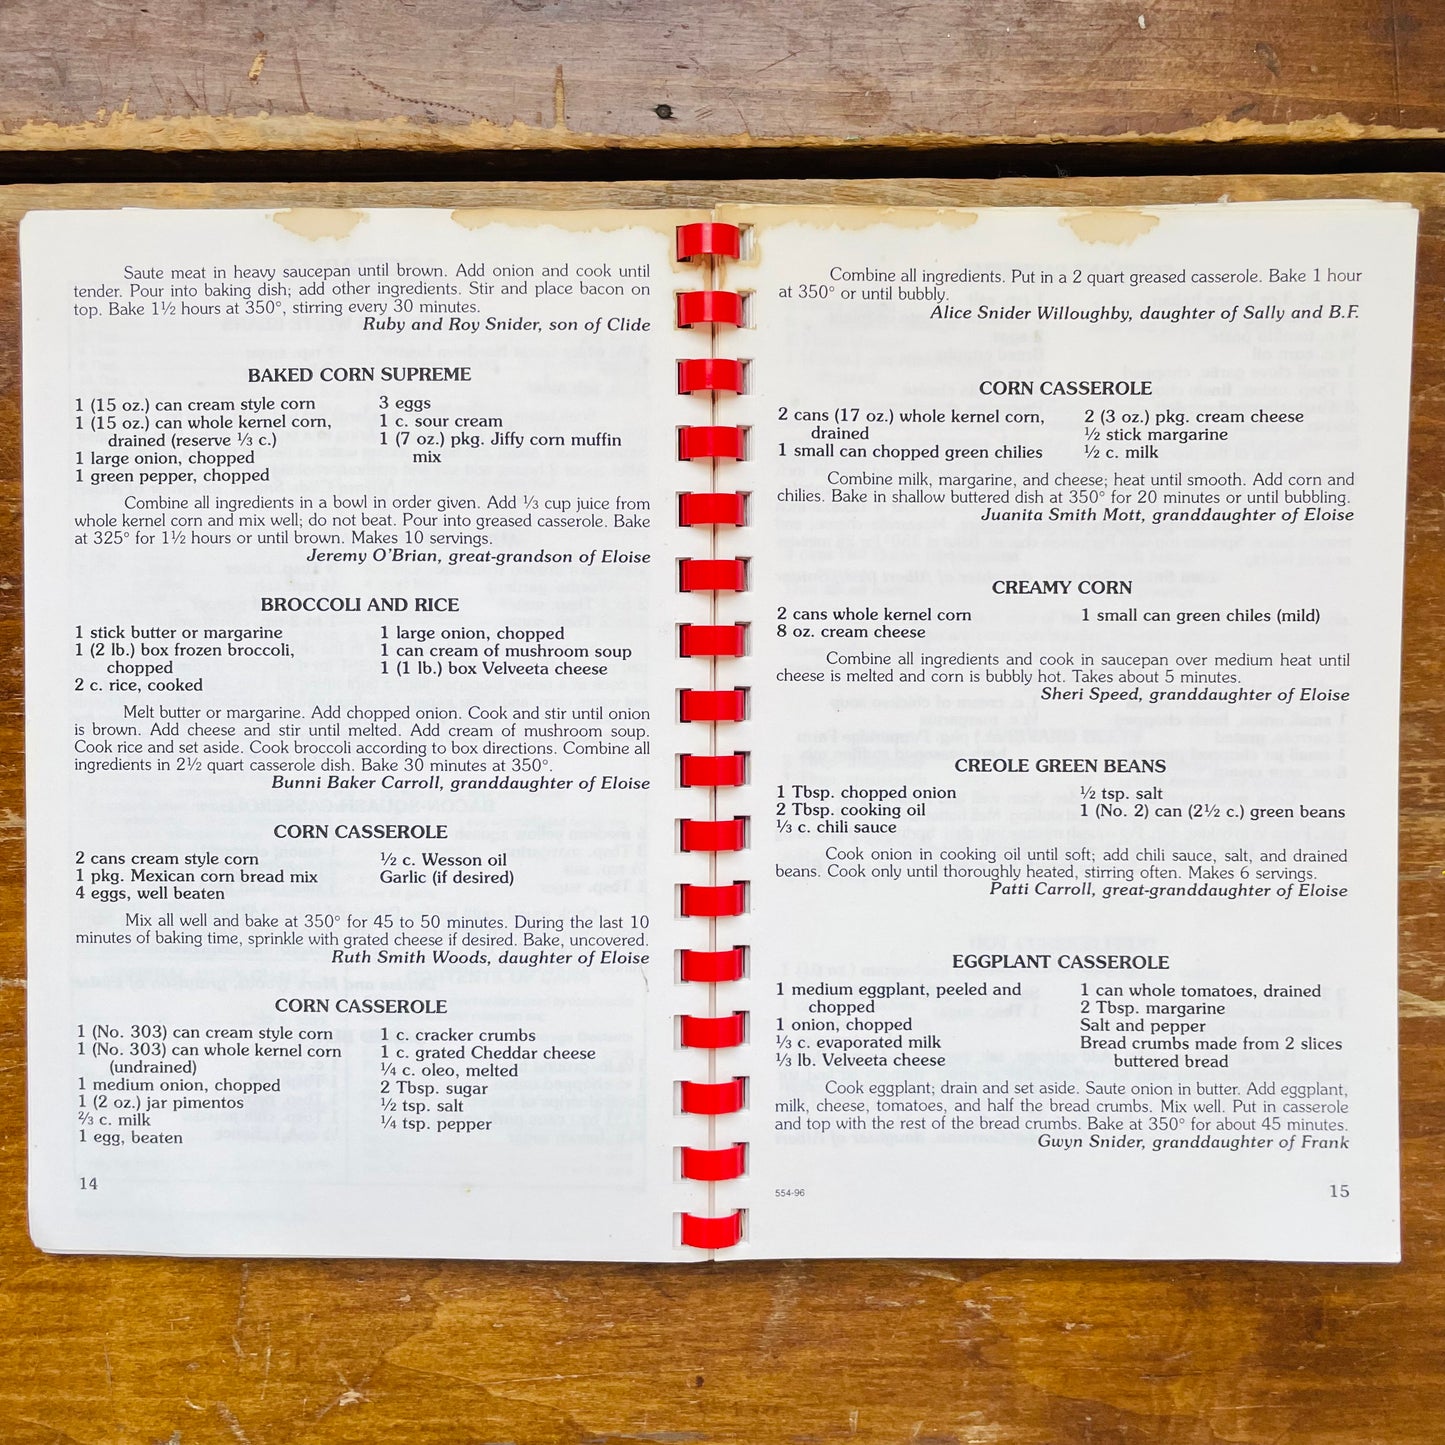 Saute meat in heavy saucepan until brown. Add onion and cook until
tender. Pour into baking dish; add other ingredients. Stir and place bacon on
top. Bake 1½ hours at 350°, stirring every 30 minutes.
Ruby and Roy Snider, son of Clide
BAKED CORN SUPREME
1 (15 oz.) can cream style corn
1 (15 oz.) can whole kernel corn,
drained (reserve ⅓ c.)
1 large onion, chopped
1 green pepper, chopped
3 eggs
1 c. sour cream
1 (7 oz.) pkg. Jiffy corn muffin
mix
Combine all ingredients in a bowl in order given. Add ⅓ cup juice from
whole kernel corn and mix well; do not beat. Pour into greased casserole. Bake
at 325° for 1½ hours or until brown. Makes 10 servings.
Jeremy O'Brian, great-grandson of Eloise
BROCCOLI AND RICE
1 stick butter or margarine
1 (2 lb.) box frozen broccoli,
chopped
2 c. rice, cooked
1 large onion, chopped
1 can cream of mushroom soup
1 (1 lb.) box Velveeta cheese
Melt butter or margarine. Add chopped onion. Cook and stir until onion
is brown. Add cheese and stir until melted. Add cream of mushroom soup.
Cook rice and set aside. Cook broccoli according to box directions. Combine all
ingredients in 2½ quart casserole dish. Bake 30 minutes at 350°.
Bunni Baker Carroll, granddaughter of Eloise
CORN CASSEROLE
2 cans cream style corn
1 pkg. Mexican corn bread mix
4 eggs, well beaten
½ c. Wesson oil
Garlic (if desired)
Mix all well and bake at 350° for 45 to 50 minutes. During the last 10
minutes of baking time, sprinkle with grated cheese if desired. Bake, uncovered.
Ruth Smith Woods, daughter of Eloise
CORN CASSEROLE
1 (No. 303) can cream style corn
1 (No. 303) can whole kernel corn
(undrained)
1 medium onion, chopped
1 (2 oz.) jar pimentos
⅔ c. milk
1 egg, beaten
1 c. cracker crumbs
1 c. grated Cheddar cheese
¼ c. oleo, melted
2 Tbsp. sugar
½ tsp. salt
¼ tsp. pepper
14
Combine all ingredients. Put in a 2 quart greased casserole. Bake 1 hour
at 350° or until bubbly.
Alice Snider Willoughby, daughter of Sally and B.F.
CORN CASSEROLE
2 cans (17 oz.) whole kernel corn,
drained
1 small chopped green chilies
2 (3 oz.) pkg. cream cheese
½ stick margarine
½ c. milk
Combine milk, margarine, and cheese; heat until smooth. Add corn and
chilies. Bake in shallow buttered dish at 350° for 20 minutes or until bubbling.
Juanita Smith Mott, granddaughter of Eloise
CREAMY CORN
2 cans whole kernel corn
8 oz. cream cheese
1 small can green chiles (mild)
Combine all ingredients and cook in saucepan over medium heat until
cheese is melted and corn is bubbly hot. Takes about 5 minutes.
Sheri Speed, granddaughter of Eloise
CREOLE GREEN BEANS
1 Tbsp. chopped onion
2 Tbsp. cooking oil
⅓ c. chili sauce
½ tsp. salt
1 (No. 2) can (2½ c.) green beans
Cook onion in cooking oil until soft; add chili sauce, salt, and drained
beans. Cook only until thoroughly heated, stirring often. Makes 6 servings.
Patti Carroll, great-granddaughter of Eloise
EGGPLANT CASSEROLE
1 medium eggplant, peeled and
chopped
1 onion, chopped
⅓ c. evaporated milk
⅓ lb. Velveeta cheese
1 can whole tomatoes, drained
2 Tbsp. margarine
Salt and pepper
Bread crumbs made from 2 slices
buttered bread
Cook eggplant; drain and set aside. Saute onion in butter. Add eggplant,
milk, cheese, tomatoes, and half the bread crumbs. Mix well. Put in casserole
and top with the rest of the bread crumbs. Bake at 350° for about 45 minutes.
Gwyn Snider, granddaughter of Frank
554-96
15